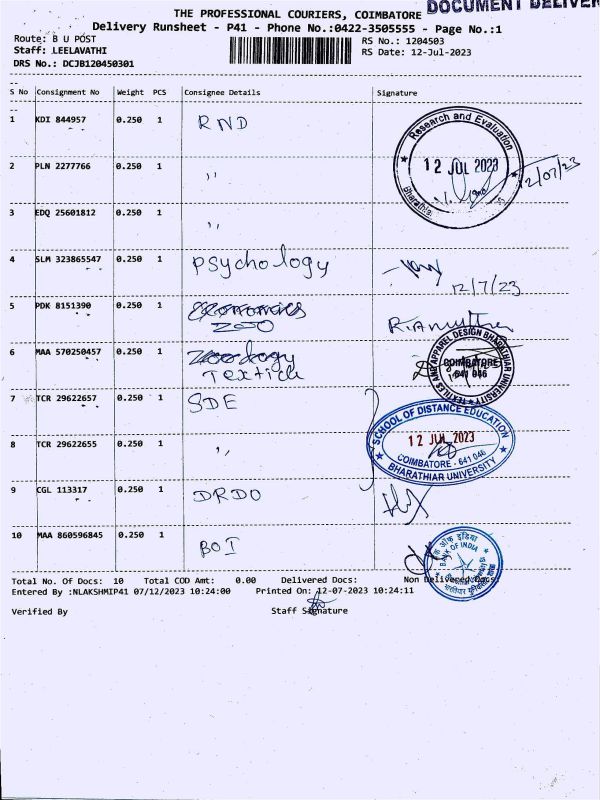 DOCUMENT DELIVER
THE PROFESSIONAL COURIERS, COIMBATORE
Delivery Runsheet - P41 - Phone No.:0422-3505555 - Page No.:1
Route: B U POST
RS No.: 1204503
Staff: LEELAVATHI
RS Date: 12-Jul-2023
DRS No.: DCJB120450301
S No Consignment No Weight PCS Consignee Details Signature
1 KDI 844957 0.250 1 RND
Research and Evaluation
12 JUL 2023
12/07/23
2 PLN 2277766 0.250 1 ,,
3 EDQ 25601812 0.250 1 ,,
4 SLM 323865547 0.250 1 Psychology
12/7/23
5 PDK 8151390 0.250 1 Economics
ZOO
6 MAA 570250457 0.250 1 Zoology
Textile
TEXTILES AND APPAREL DESIGN BHARATHIAR UNIVERSITY
COIMBATORE
641 046
7 TCR 29622657 0.250 1 SDE
SCHOOL OF DISTANCE EDUCATION
12 JUL 2023
COIMBATORE - 641 046
BHARATHIAR UNIVERSITY
8 TCR 29622655 0.250 1 ,,
9 CGL 113317 0.250 1 DRDO
10 MAA 860596845 0.250 1 BOI
बैंक ऑफ इंडिया
BANK OF INDIA
Total No. Of Docs: 10 Total COD Amt: 0.00 Delivered Docs: Non Delivered Docs:
Entered By :NLAKSHMIP41 07/12/2023 10:24:00 Printed On: 12-07-2023 10:24:11
Verified By Staff Signature